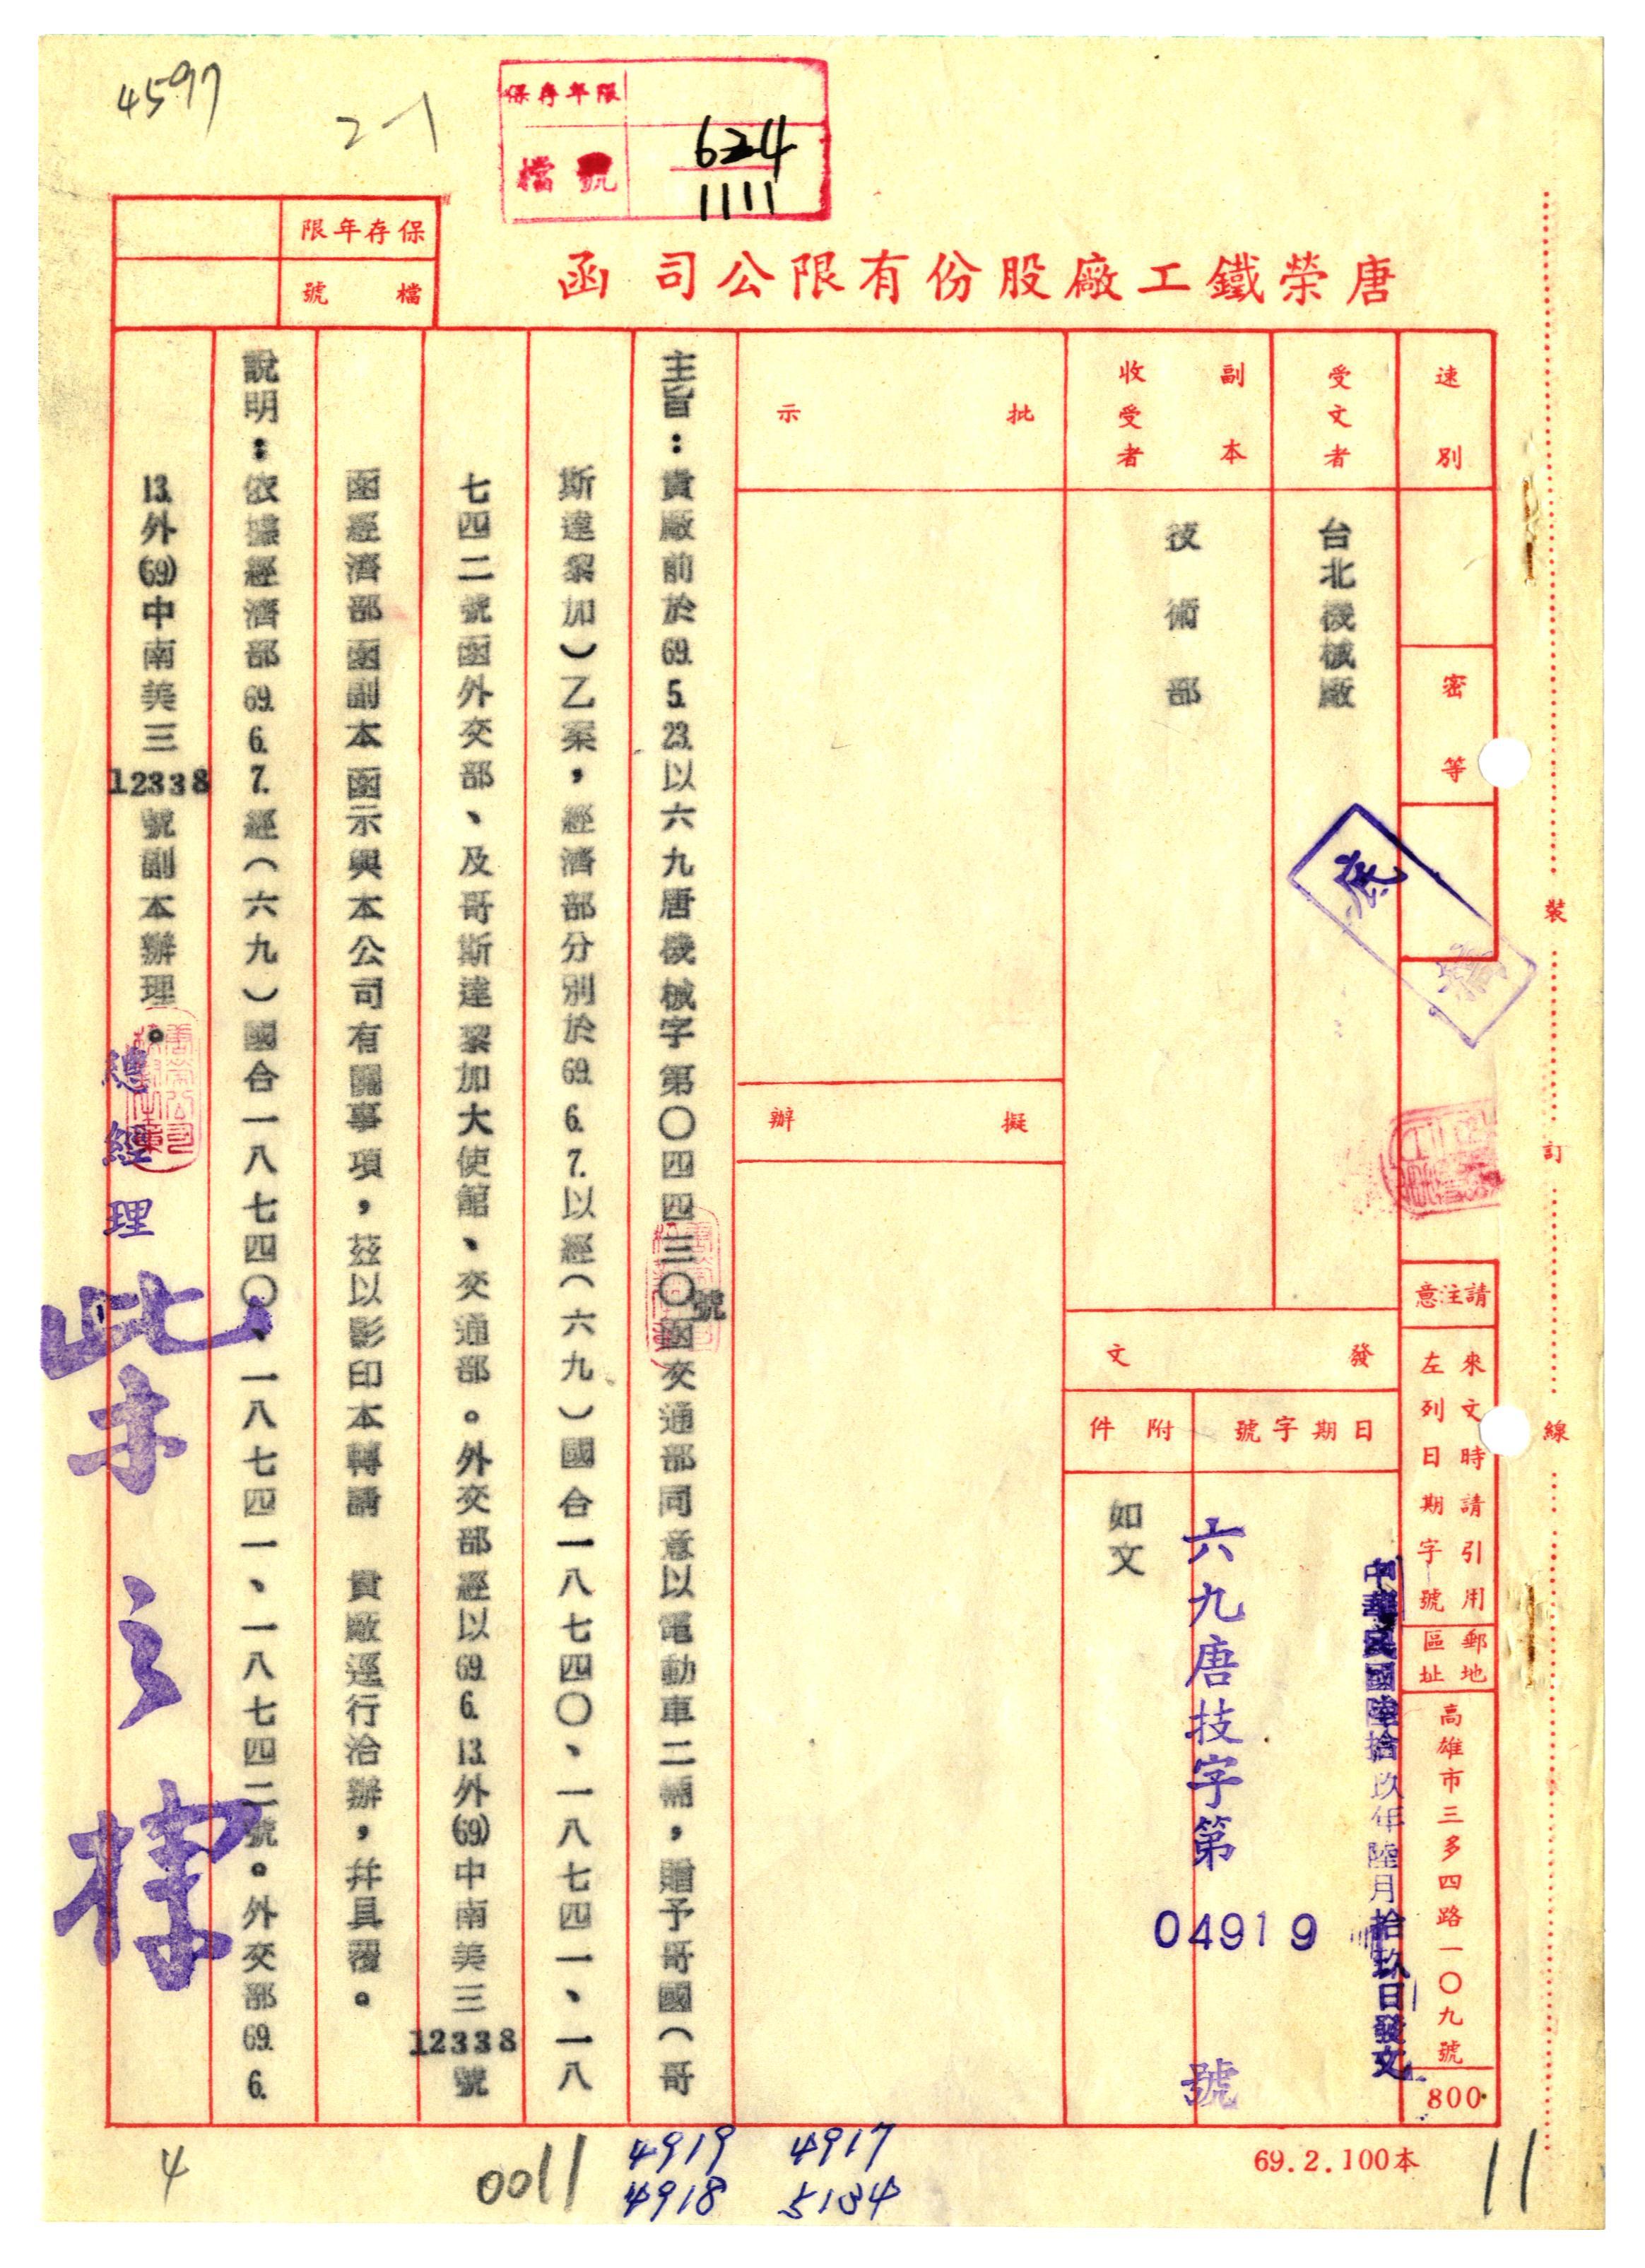 4597
2-1
保存年限
檔號
624
1111
保存年限
檔號
唐榮鐵工廠股份有限公司 函
速別
密等
受文者
台北機械廠
副本
收受者
技術部
批示
擬辦
發文
日期字號
中華民國陸拾玖年陸月拾玖日發文
六九唐技字第04919號
附件
如文
請注意
來文時請引用
左列日期字號
郵地
區址
高雄市三多四路一〇九號
800
裝
訂
線
主旨：貴廠前於69.5.23.以六九唐機械字第〇四四三〇號函交通部同意以電動車二輛，贈予哥國（哥
斯達黎加）乙案，經濟部分別於69.6.7.以經（六九）國合一八七四〇、一八七四一、一八
七四二號函外交部、及哥斯達黎加大使館、交通部。外交部經以69.6.13.外(69)中南美三12338號
函經濟部函副本函示與本公司有關事項，茲以影印本轉請　貴廠逕行洽辦，并具覆。
說明：依據經濟部69.6.7.經（六九）國合一八七四〇、一八七四一、一八七四二號。外交部69.6.
13.外(69)中南美三12338號副本辦理。
總經理
柴之棣
4
0011
4919 4917
4918 5134
69.2.100本
11